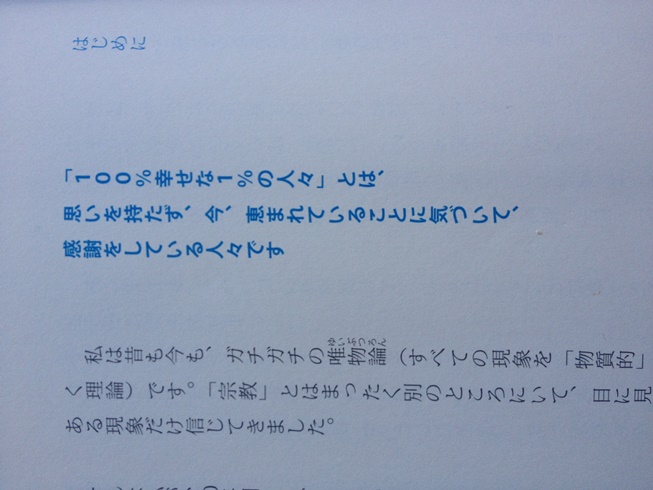 はじめに
「１００％幸せな１％の人々」とは、
思いを持たず、今、恵まれていることに気づいて、
感謝をしている人々です
私は昔も今も、ガチガチの唯物論（すべての現象を「物質的」
ゆいぶつろん
く理論）です。「宗教」とはまったく別のところにいて、目に見
ある現象だけ信じてきました。